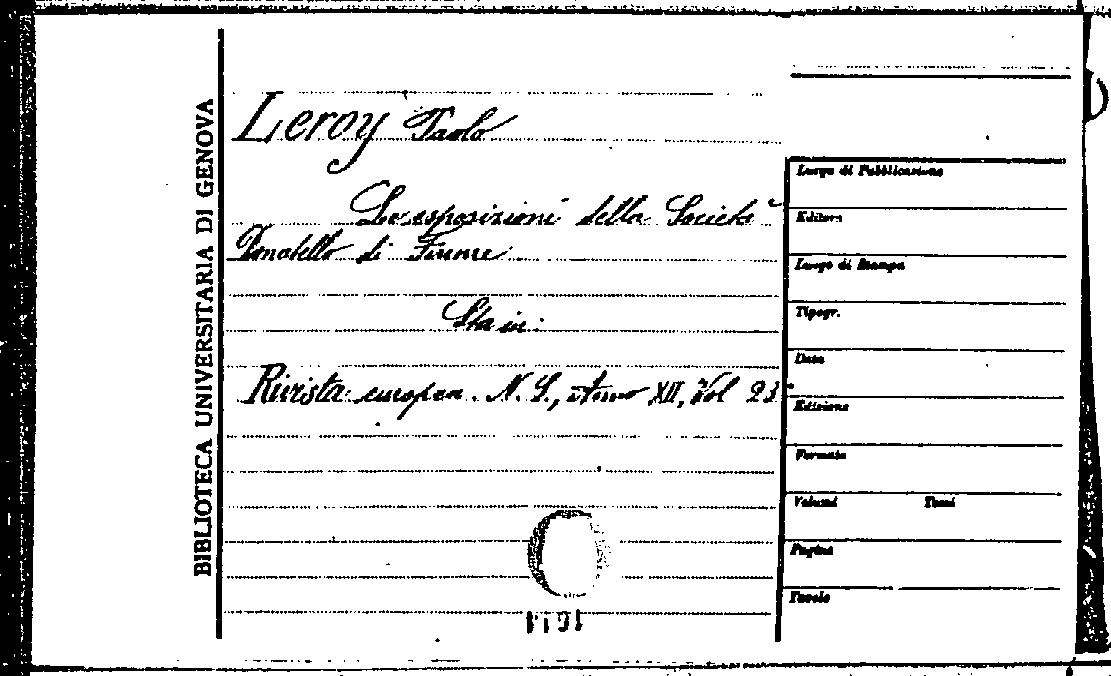 BIBLIOTECA UNIVERSITARIA DI GENOVA
Leroy Paolo
Le esposizioni della Società
Donatello di Firenze.
Sta in:
Rivista europea. N. S., Anno XII, Vol 23°
Luogo di Pubblicazione
Editore
Luogo di Stampa
Tipogr.
Data
Edizione
Formato
Volumi Tomi
Pagine
Tavole